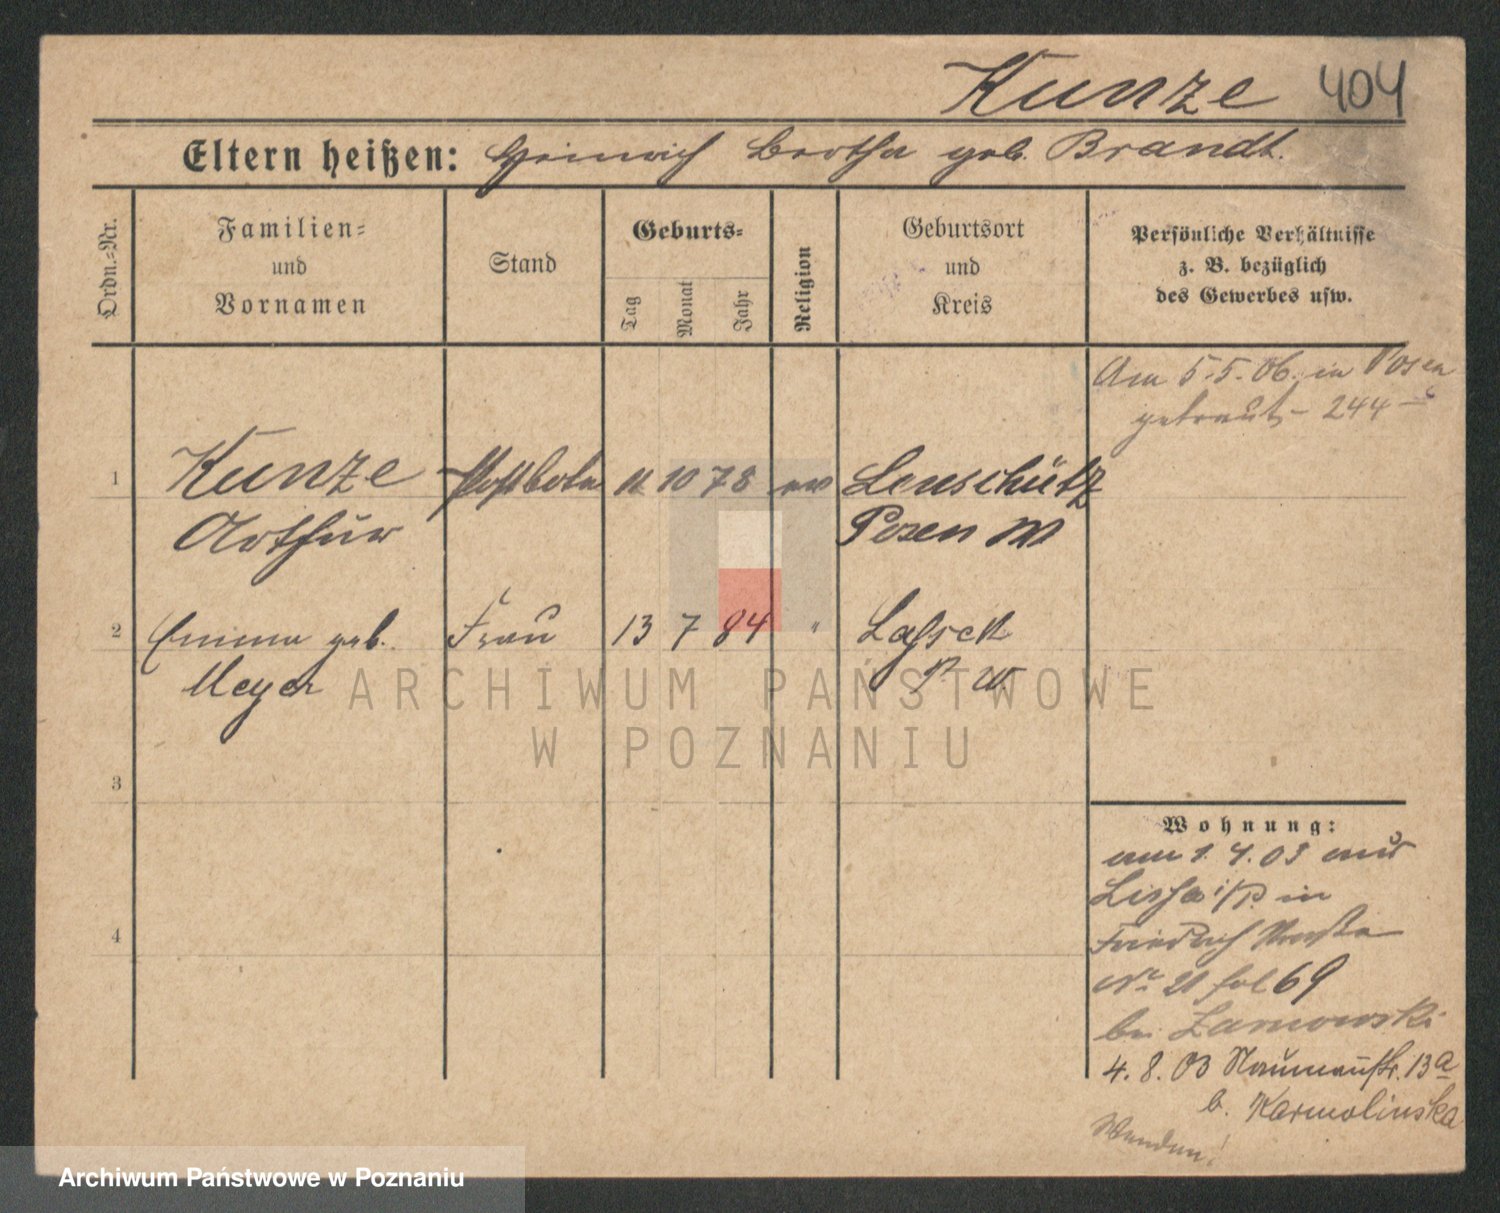 Kunze 404
Eltern heißen: Heinrich Bertha geb. Brandt.
Ordn.-Nr.
Familien-
und
Vornamen
Stand
Geburts-
Tag
Monat
Jahr
Religion
Geburtsort
und
Kreis
Persönliche Verhältnisse
z. B. bezüglich
des Gewerbes usw.
Am 5.5.06. in Posen
getraut – 244 –
1 Kunze Postbote 11 10 78 ev Lenschütz
Arthur Posen W
2 Emma geb. Frau 13 7 84 "
Meyer P W
3
4
Wohnung:
am 1.4.03 aus
Lissa i/P. in
Friedrich Straße
No 21 fol 69
bei Zarnowski
4.8.03 Naumannstr. 13a
b. Karmolinska
Wenden!
ARCHIWUM PAŃSTWOWE
W POZNANIU
Archiwum Państwowe w Poznaniu